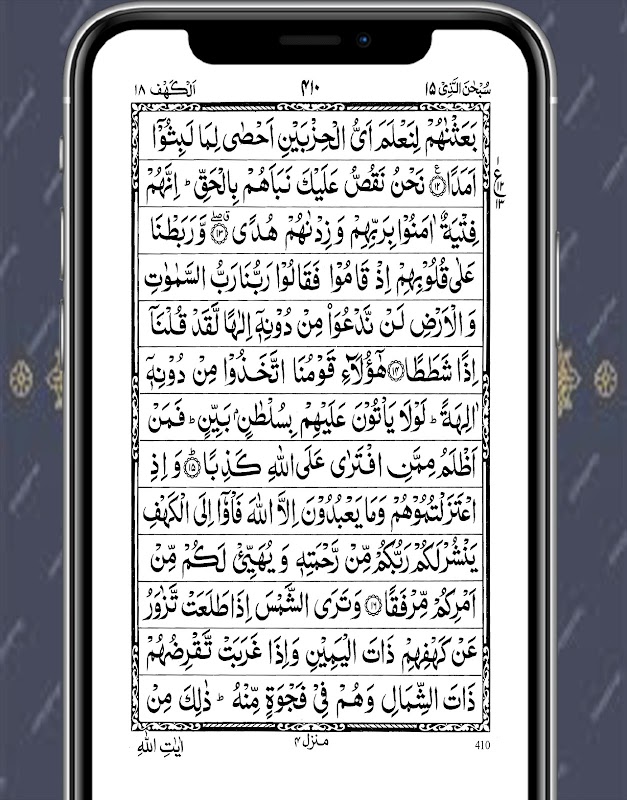 سُبْحٰنَ الَّذِيْٓ ۱۵ ۴۱۰ اَلْكَهْف ۱۸
بَعَثْنٰهُمْ لِنَعْلَمَ اَىُّ الْحِزْبَيْنِ اَحْصٰى لِمَا لَبِثُوْٓا
اَمَدًا ﴿۱۲﴾ نَحْنُ نَقُصُّ عَلَيْكَ نَبَاَهُمْ بِالْحَقِّ ؕ اِنَّهُمْ
ع ۱۲ ۱۳
فِتْيَةٌ اٰمَنُوْا بِرَبِّهِمْ وَ زِدْنٰهُمْ هُدًى ﴿۱۳﴾ وَّ رَبَطْنَا
عَلٰى قُلُوْبِهِمْ اِذْ قَامُوْا فَقَالُوْا رَبُّنَا رَبُّ السَّمٰوٰتِ
وَ الْاَرْضِ لَنْ نَّدْعُوَا۟ مِنْ دُوْنِهٖٓ اِلٰهًا لَّقَدْ قُلْنَآ
اِذًا شَطَطًا ﴿۱۴﴾ هٰٓؤُلَآءِ قَوْمُنَا اتَّخَذُوْا مِنْ دُوْنِهٖٓ
اٰلِهَةً ؕ لَوْلَا يَاْتُوْنَ عَلَيْهِمْ بِسُلْطٰنٍۭ بَيِّنٍ ؕ فَمَنْ
اَظْلَمُ مِمَّنِ افْتَرٰى عَلَى اللّٰهِ كَذِبًا ﴿۱۵﴾ وَ اِذِ
اعْتَزَلْتُمُوْهُمْ وَمَا يَعْبُدُوْنَ اِلَّا اللّٰهَ فَاْوٗٓا اِلَى الْكَهْفِ
يَنْشُرْ لَكُمْ رَبُّكُمْ مِّنْ رَّحْمَتِهٖ وَ يُهَيِّئْ لَكُمْ مِّنْ
اَمْرِكُمْ مِّرْفَقًا ﴿۱۶﴾ وَ تَرَى الشَّمْسَ اِذَا طَلَعَتْ تَّزٰوَرُ
عَنْ كَهْفِهِمْ ذَاتَ الْيَمِيْنِ وَاِذَا غَرَبَتْ تَّقْرِضُهُمْ
ذَاتَ الشِّمَالِ وَهُمْ فِيْ فَجْوَةٍ مِّنْهُ ؕ ذٰلِكَ مِنْ
اٰيٰتِ اللّٰهِ
منزل ۴
410